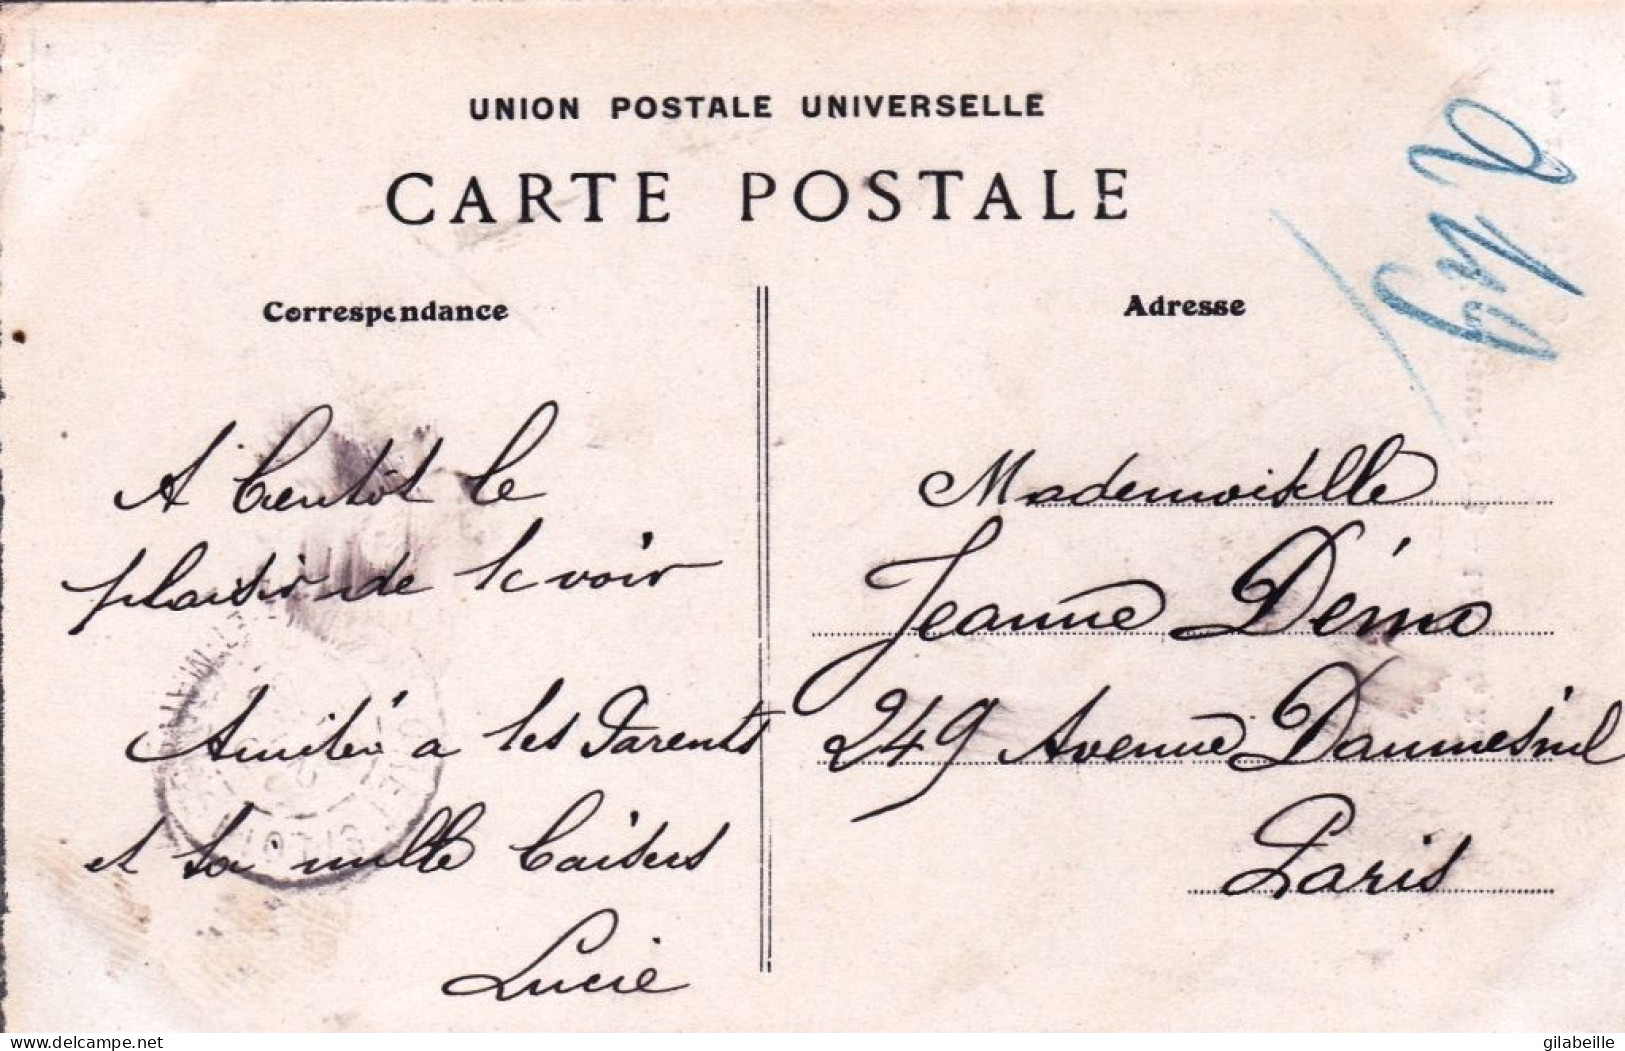 UNION POSTALE UNIVERSELLE
CARTE POSTALE
Correspondance
Adresse
A bientôt le
plaisir de te voir
Amitié à tes Parents
et toi mille baisers
Lucie
Mademoiselle
Jeanne
249 Avenue Daumesnil
Paris
delcampe.net
gilabeille